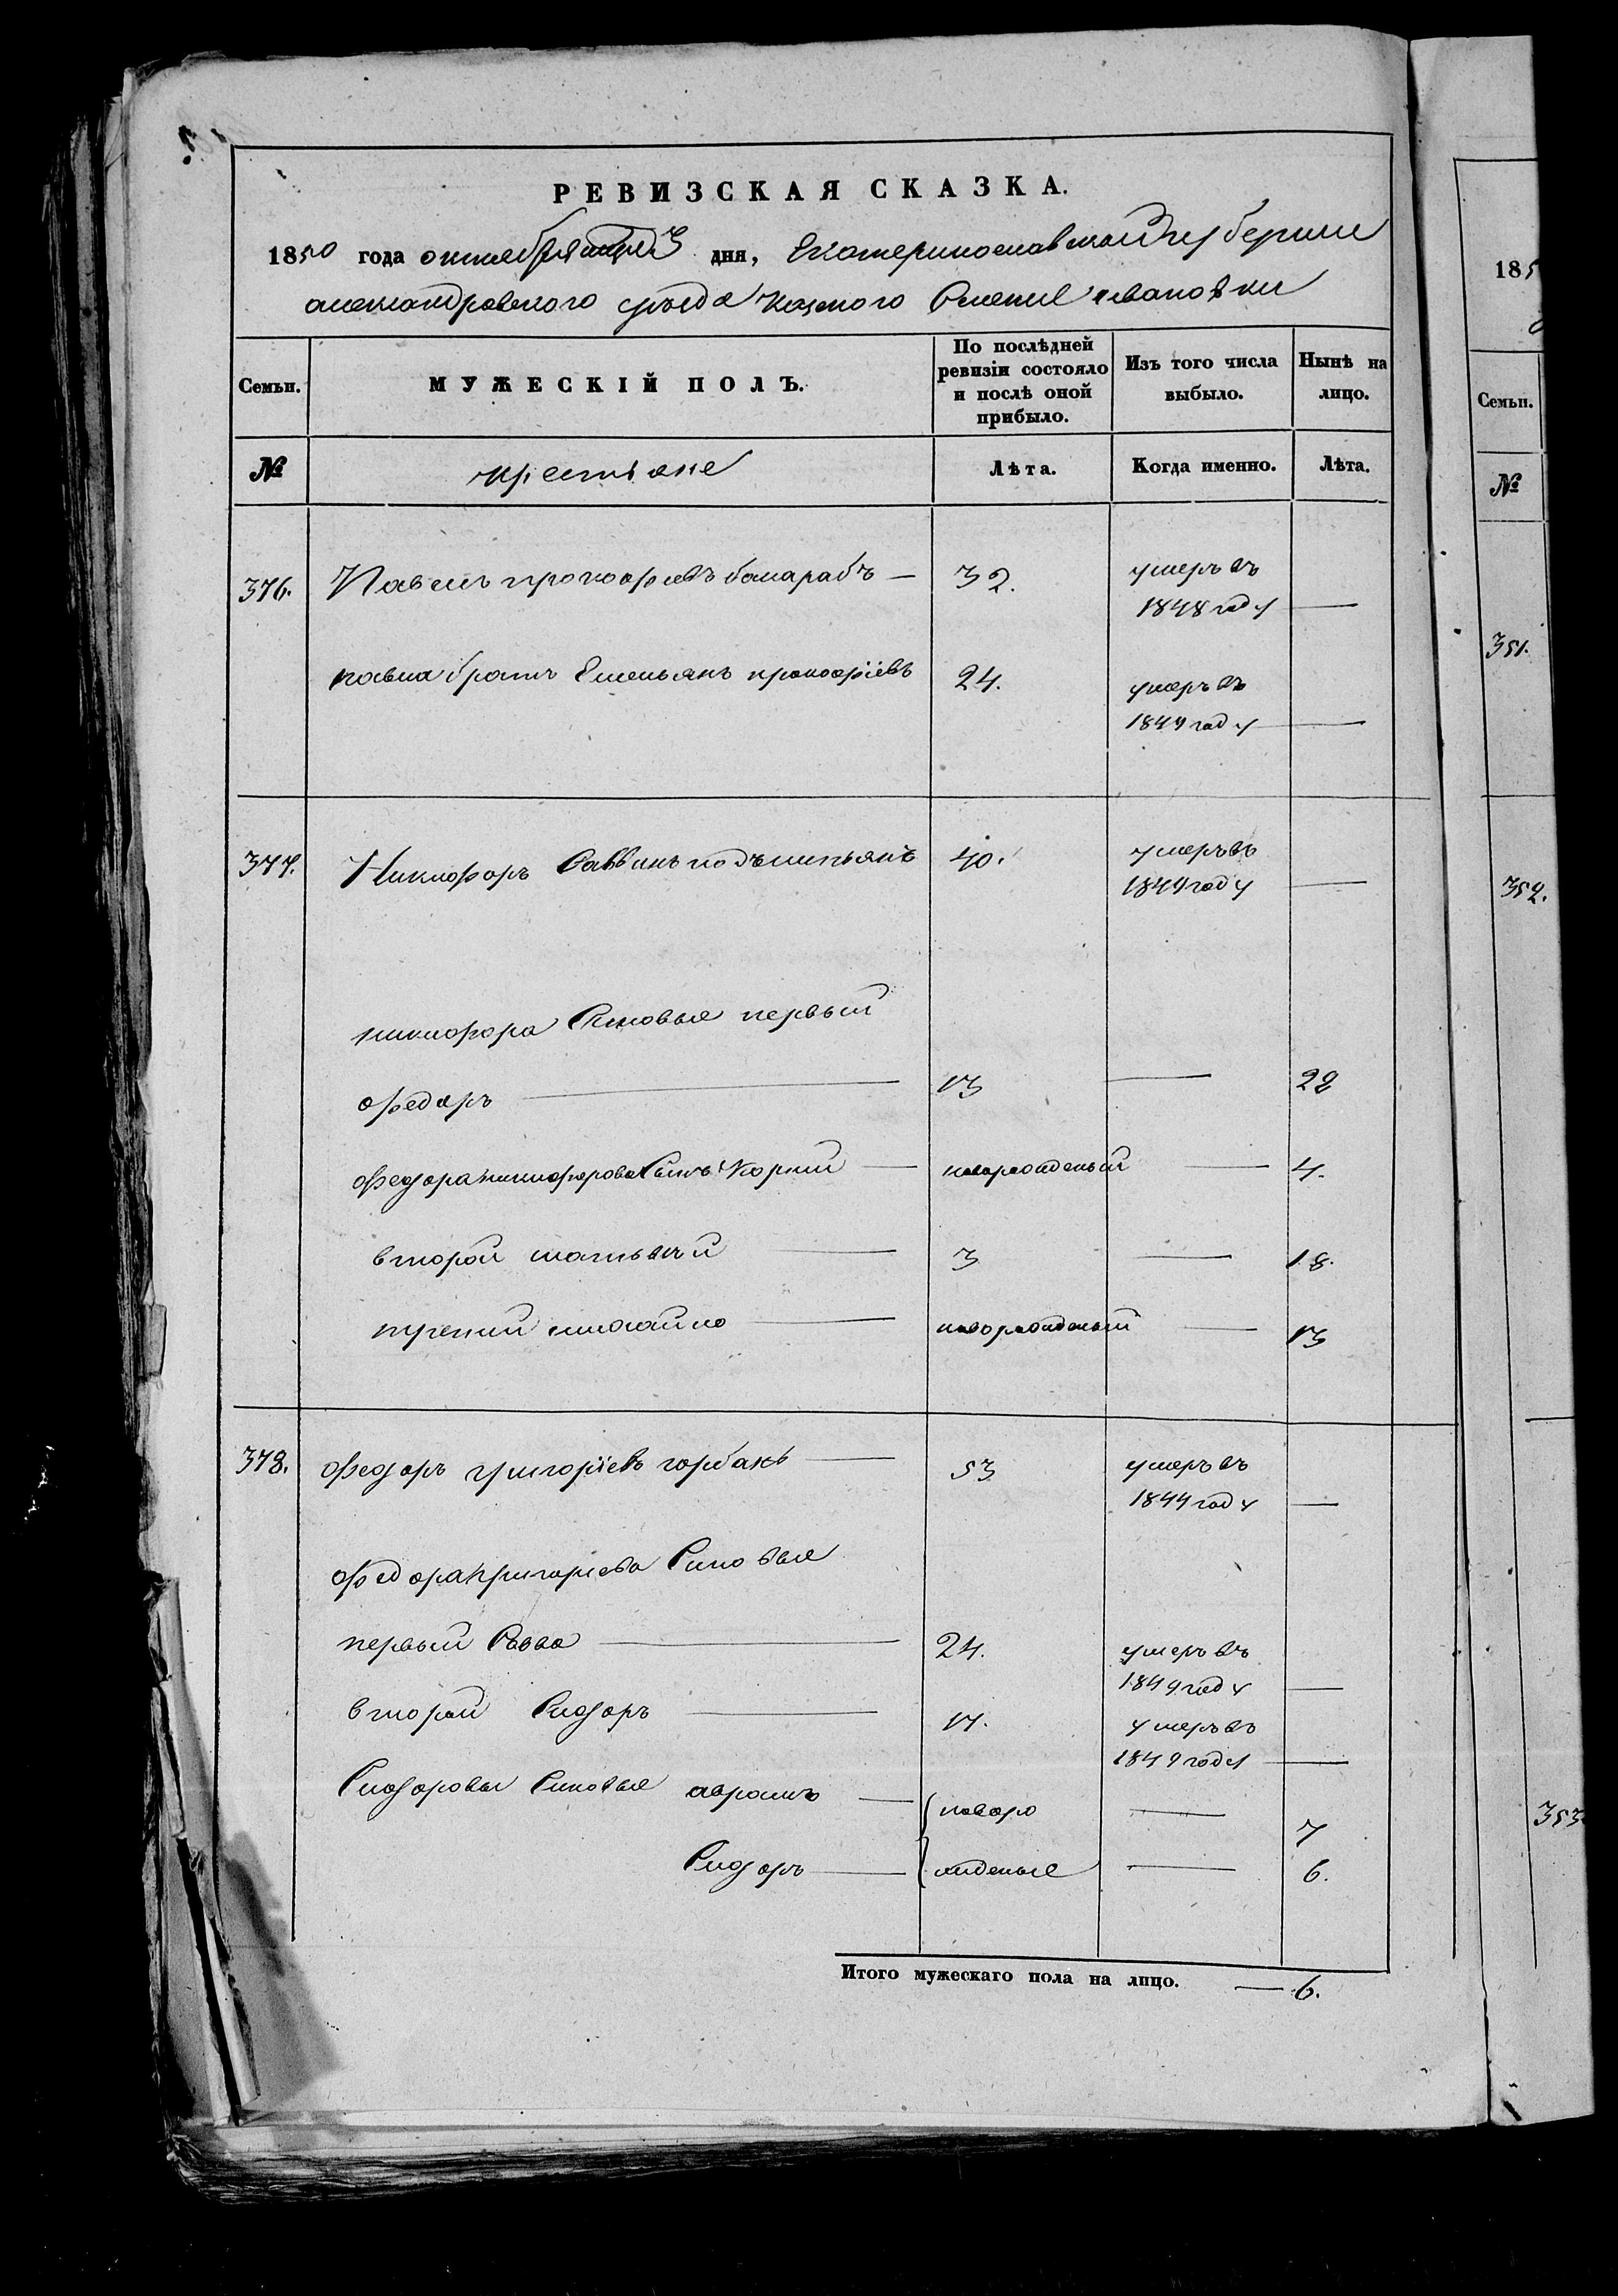 РЕВИЗСКАЯ СКАЗКА.
1850 года октября 3 дня, Екатеринославской губернии
александровского уезда казеного Селения ивановки
Семьи.
МУЖЕСКІЙ ПОЛЪ.
По послѣдней ревизіи состояло и послѣ оной прибыло.
Изъ того числа выбыло.
Нынѣ на лицо.
№
крестьяне
Лѣта.
Когда именно.
Лѣта.
376. Павелъ прокофиевъ — 32. умеръ въ
1848 году —
павла братъ Емельянъ прокофіевъ 24. умеръ въ
1849 году —
377. Никифоръ Саввинъ 40. умеръ въ
1849 году —
никифора Сыновья первый
федоръ — 13 — 28
федора никифорова Сынъ Корнй — новорожденый — 4.
второй матвѣй — 3 — 18.
третий михайло — новорожденый — 13
378. федоръ григоріевъ горбань — 53 умеръ въ
1844 году —
федора григориева Сыновья
первый Савва — 24. умеръ въ
1849 году —
второй Сидоръ — 17. умеръ въ
1849 году —
Сидоровы Сыновья аврамъ — новоро — 7
Сидоръ — жденые — 6.
Итого мужескаго пола на лицо. — 6.
185
Семьи.
№
351.
352.
353